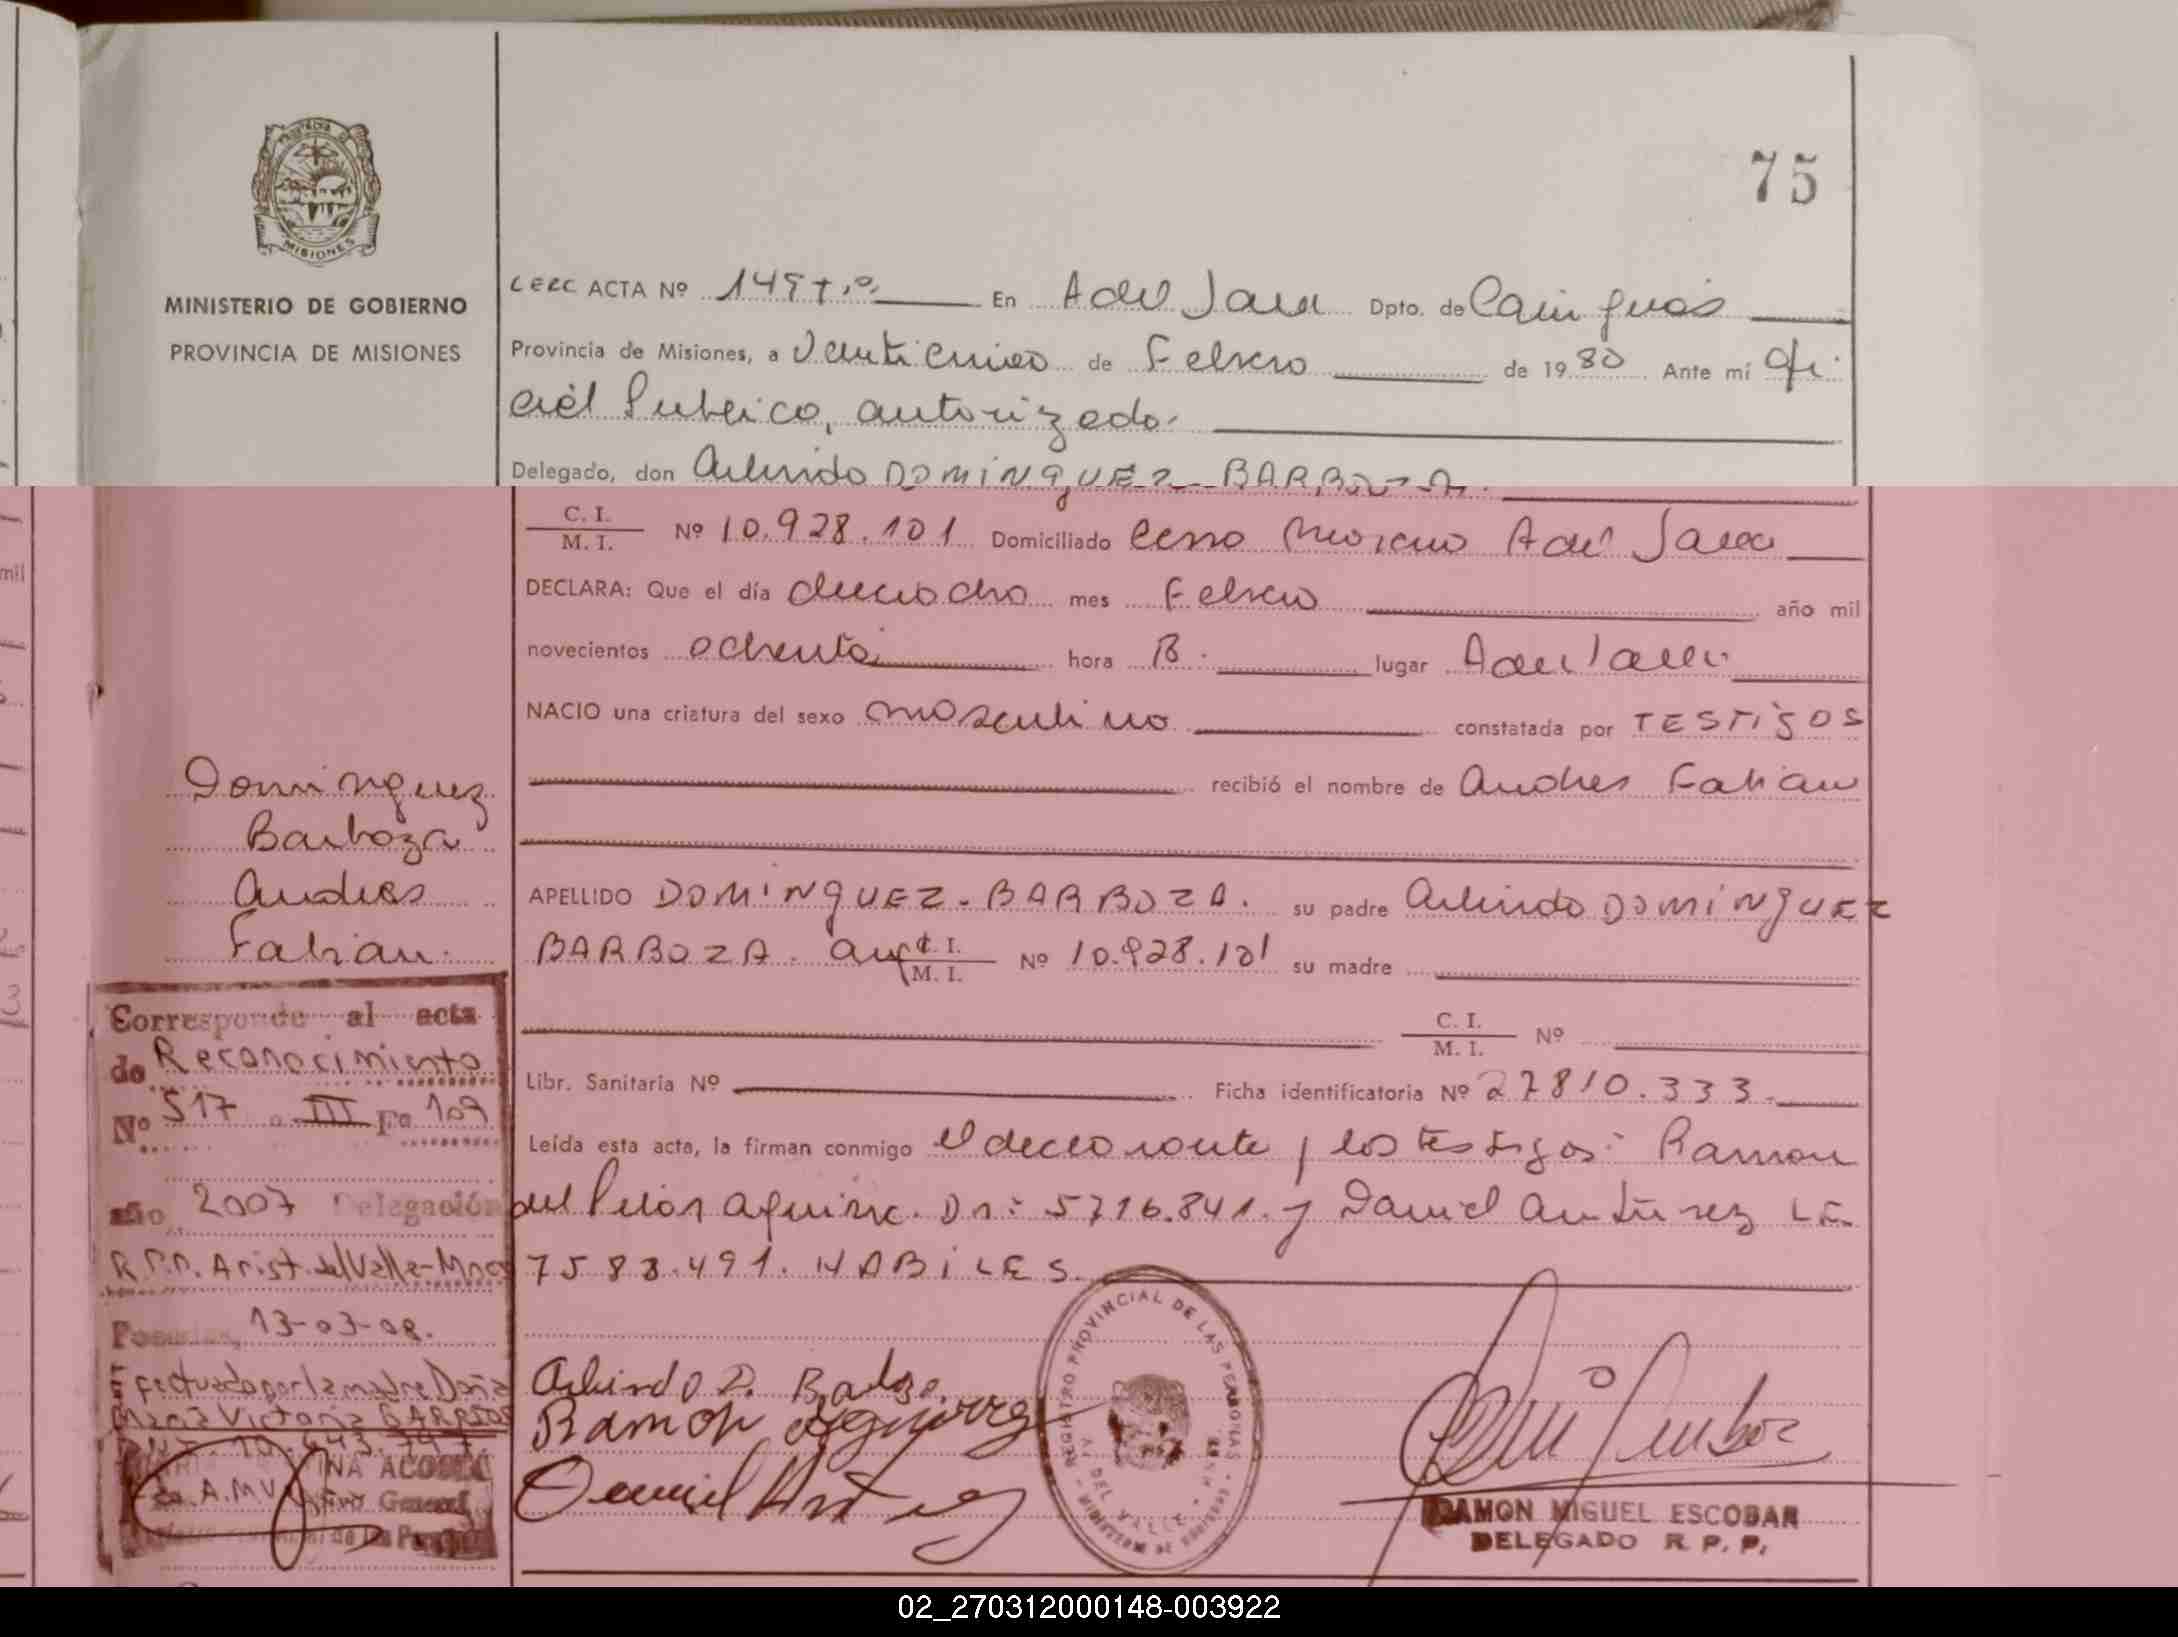 75
PROVINCIA DE
MISIONES
MINISTERIO DE GOBIERNO
PROVINCIA DE MISIONES
ACTA Nº 149 En A del Valle Dpto. de Cainguás
Provincia de Misiones, a Veinticinco de Febrero de 1980 Ante mí Ofi-
cial Público, autorizado.
Delegado, don Arlindo DOMÍNGUEZ BARBOZA.
C. I.
M. I. Nº 10.928.101 Domiciliado Cerro Moreno A del Valle
DECLARA: Que el día dieciocho mes Febrero año mil
novecientos ochenta hora lugar A del Valle
NACIO una criatura del sexo masculino constatada por TESTIGOS
recibió el nombre de Andres Fabian
APELLIDO DOMINGUEZ-BARBOZA. su padre Arlindo DOMINGUEZ
BARBOZA. arg C. I.
M. I. Nº 10.928.101 su madre
C. I.
M. I. Nº
Libr. Sanitaria Nº Ficha identificatoria Nº 27810.333.
Leída esta acta, la firman conmigo el declarante y los testigos: Ramon
del Pilar Aguirre. 5716.841. y Daniel Antunez L.E.
7583.491. HABILES.
Dominguez
Barboza
Andres
Fabian.
Corresponde al acta
de Reconocimiento
Nº 517 III Fº 109
año 2007 Delegación
R.P.P. Arist. del Valle-Mnes
Posadas, 13-03-08.
fectuado por la madre Doña
Maria Victoria BARRIOS
Arlindo D. Barboza
Ramon Aguirre
Daniel Antunez
REGISTRO PROVINCIAL DE LAS PERSONAS
DEL VALLE
RAMON MIGUEL ESCOBAR
DELEGADO R. P. P.
02_270312000148-003922